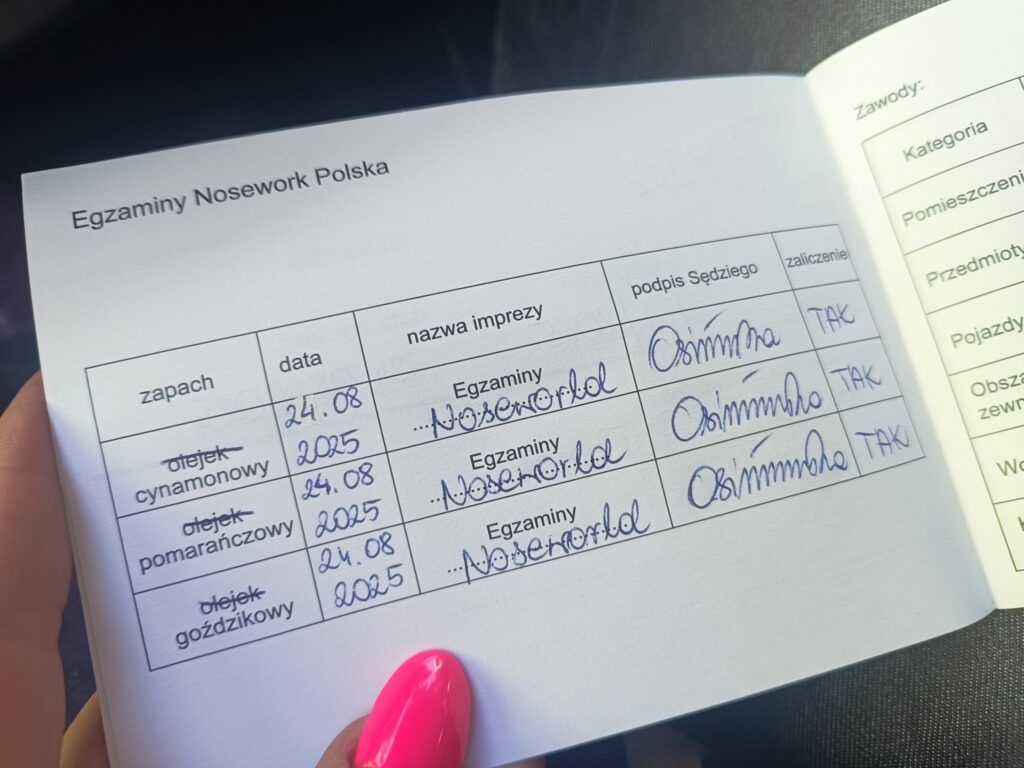 Egzaminy Nosework Polska
zapach
data
nazwa imprezy
podpis Sędziego
zaliczenie
olejek
cynamonowy
24.08
2025
Egzaminy
...Noseworld
TAK
olejek
pomarańczowy
24.08
2025
Egzaminy
...Noseworld
TAK
olejek
goździkowy
24.08
2025
Egzaminy
...Noseworld
TAK
Zawody:
Kategoria
Przedmioty
Pojazdy